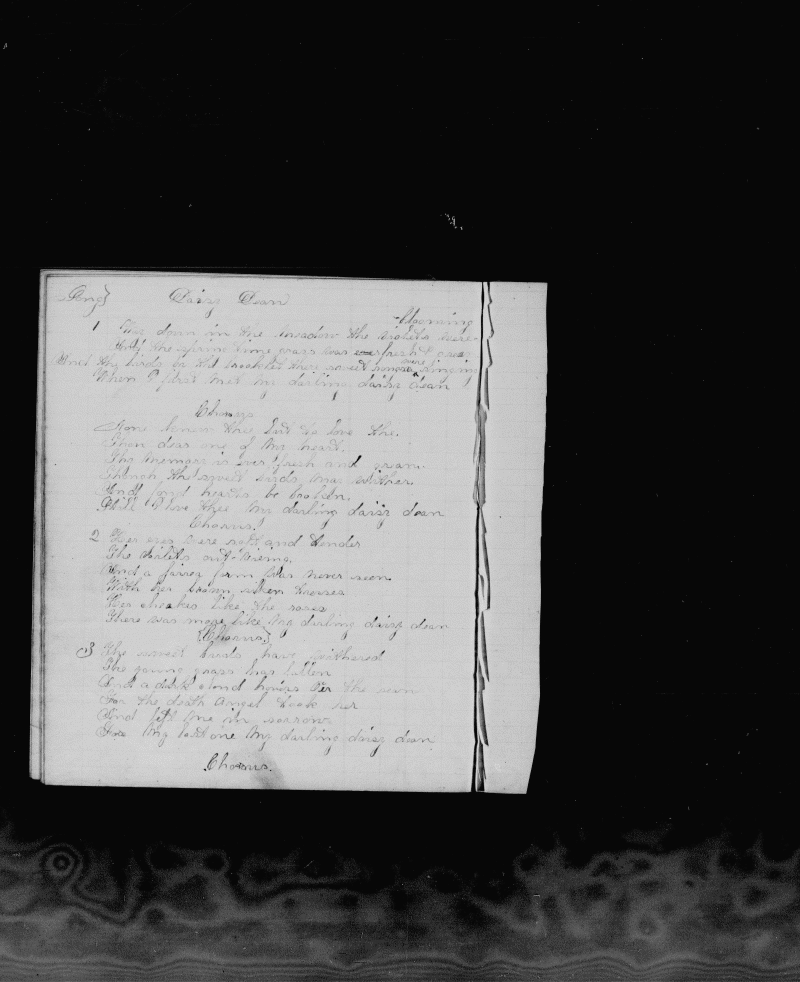 Song} Daisy Dean
blooming
1 Twas down in the meadow the violets were
And the spring time grass was fresh & green
And the birds by the brooklet their sweet songs were singing
When I first met my darling daisy dean
Chorus
None knew thee but to love the.
Thou dear one of my heart.
Thy memory is ever fresh and green.
Though the sweet buds may wither
And fond hearts be broken.
Still I love thee my darling daisy dean
Chorus.
2 Her eyes were soft and tender
The violets out-vieing.
And a fairer form was never seen
With her brown silken tresses
Her cheeks like the roses
There was none like my darling daisy dean
{Chorus}
3 The sweet buds have withered
The young grass has fallen
And a dark cloud hovers oer the scene
For the death angel took her
And left me in sorrow
For my lost one my darling daisy dean
Chorus.